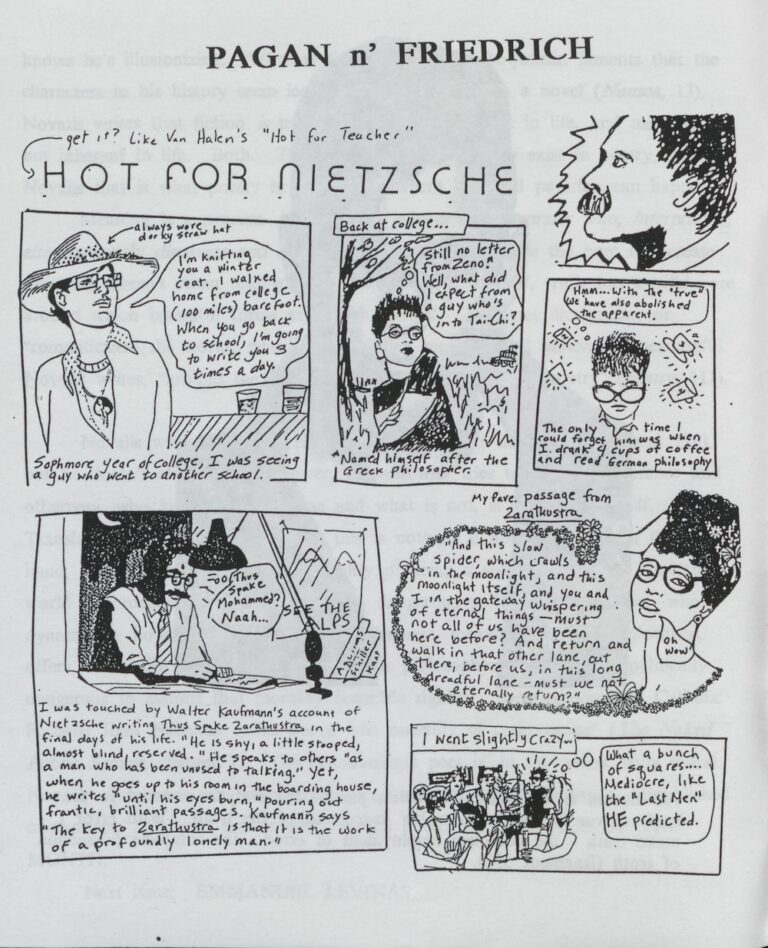 PAGAN n' FRIEDRICH
get it? Like Van Halen's "Hot for Teacher"
HOT FOR NIETZSCHE
always wore
dorky straw hat
I'm knitting
you a winter
coat. I walked
home from college
(100 miles) barefoot.
When you go back
to school, I'm going
to write you 3
times a day.
Sophmore year of college, I was seeing
a guy who went to another school.
Back at college...
Still no letter
from Zeno!*
Well, what did
I expect from
a guy who's
into Tai-Chi?
*Named himself after the
Greek philosopher.
Hmm... With the "true"
we have also abolished
the apparent.
The only time I
could forget him was when
I drank 4 cups of coffee
and read German philosophy
Thus
Spake
Mohammed?
Naah...
SEE THE
ALPS
Schiller
Kant
I was touched by Walter Kaufmann's account of
Nietzsche writing Thus Spake Zarathustra in the
final days of his life. "He is shy, a little stooped,
almost blind, reserved." He speaks to others "as
a man who has been unused to talking." Yet,
when he goes up to his room in the boarding house,
he writes "until his eyes burn," pouring out
frantic, brilliant passages. Kaufmann says
"The key to Zarathustra is that it is the work
of a profoundly lonely man."
My fave. passage from
Zarathustra
"And this slow
spider, which crawls
in the moonlight, and this
moonlight itself, and you and
I in the gateway whispering
of eternal things — must
not all of us have been
here before? And return and
walk in that other lane, out
there, before us, in this long
dreadful lane - must we not
eternally return?"
Oh
Wow!
I went slightly crazy...
What a bunch
of squares....
Mediocre, like
the "Last Men"
HE predicted.
Next issue: EMMANUEL LEVINAS